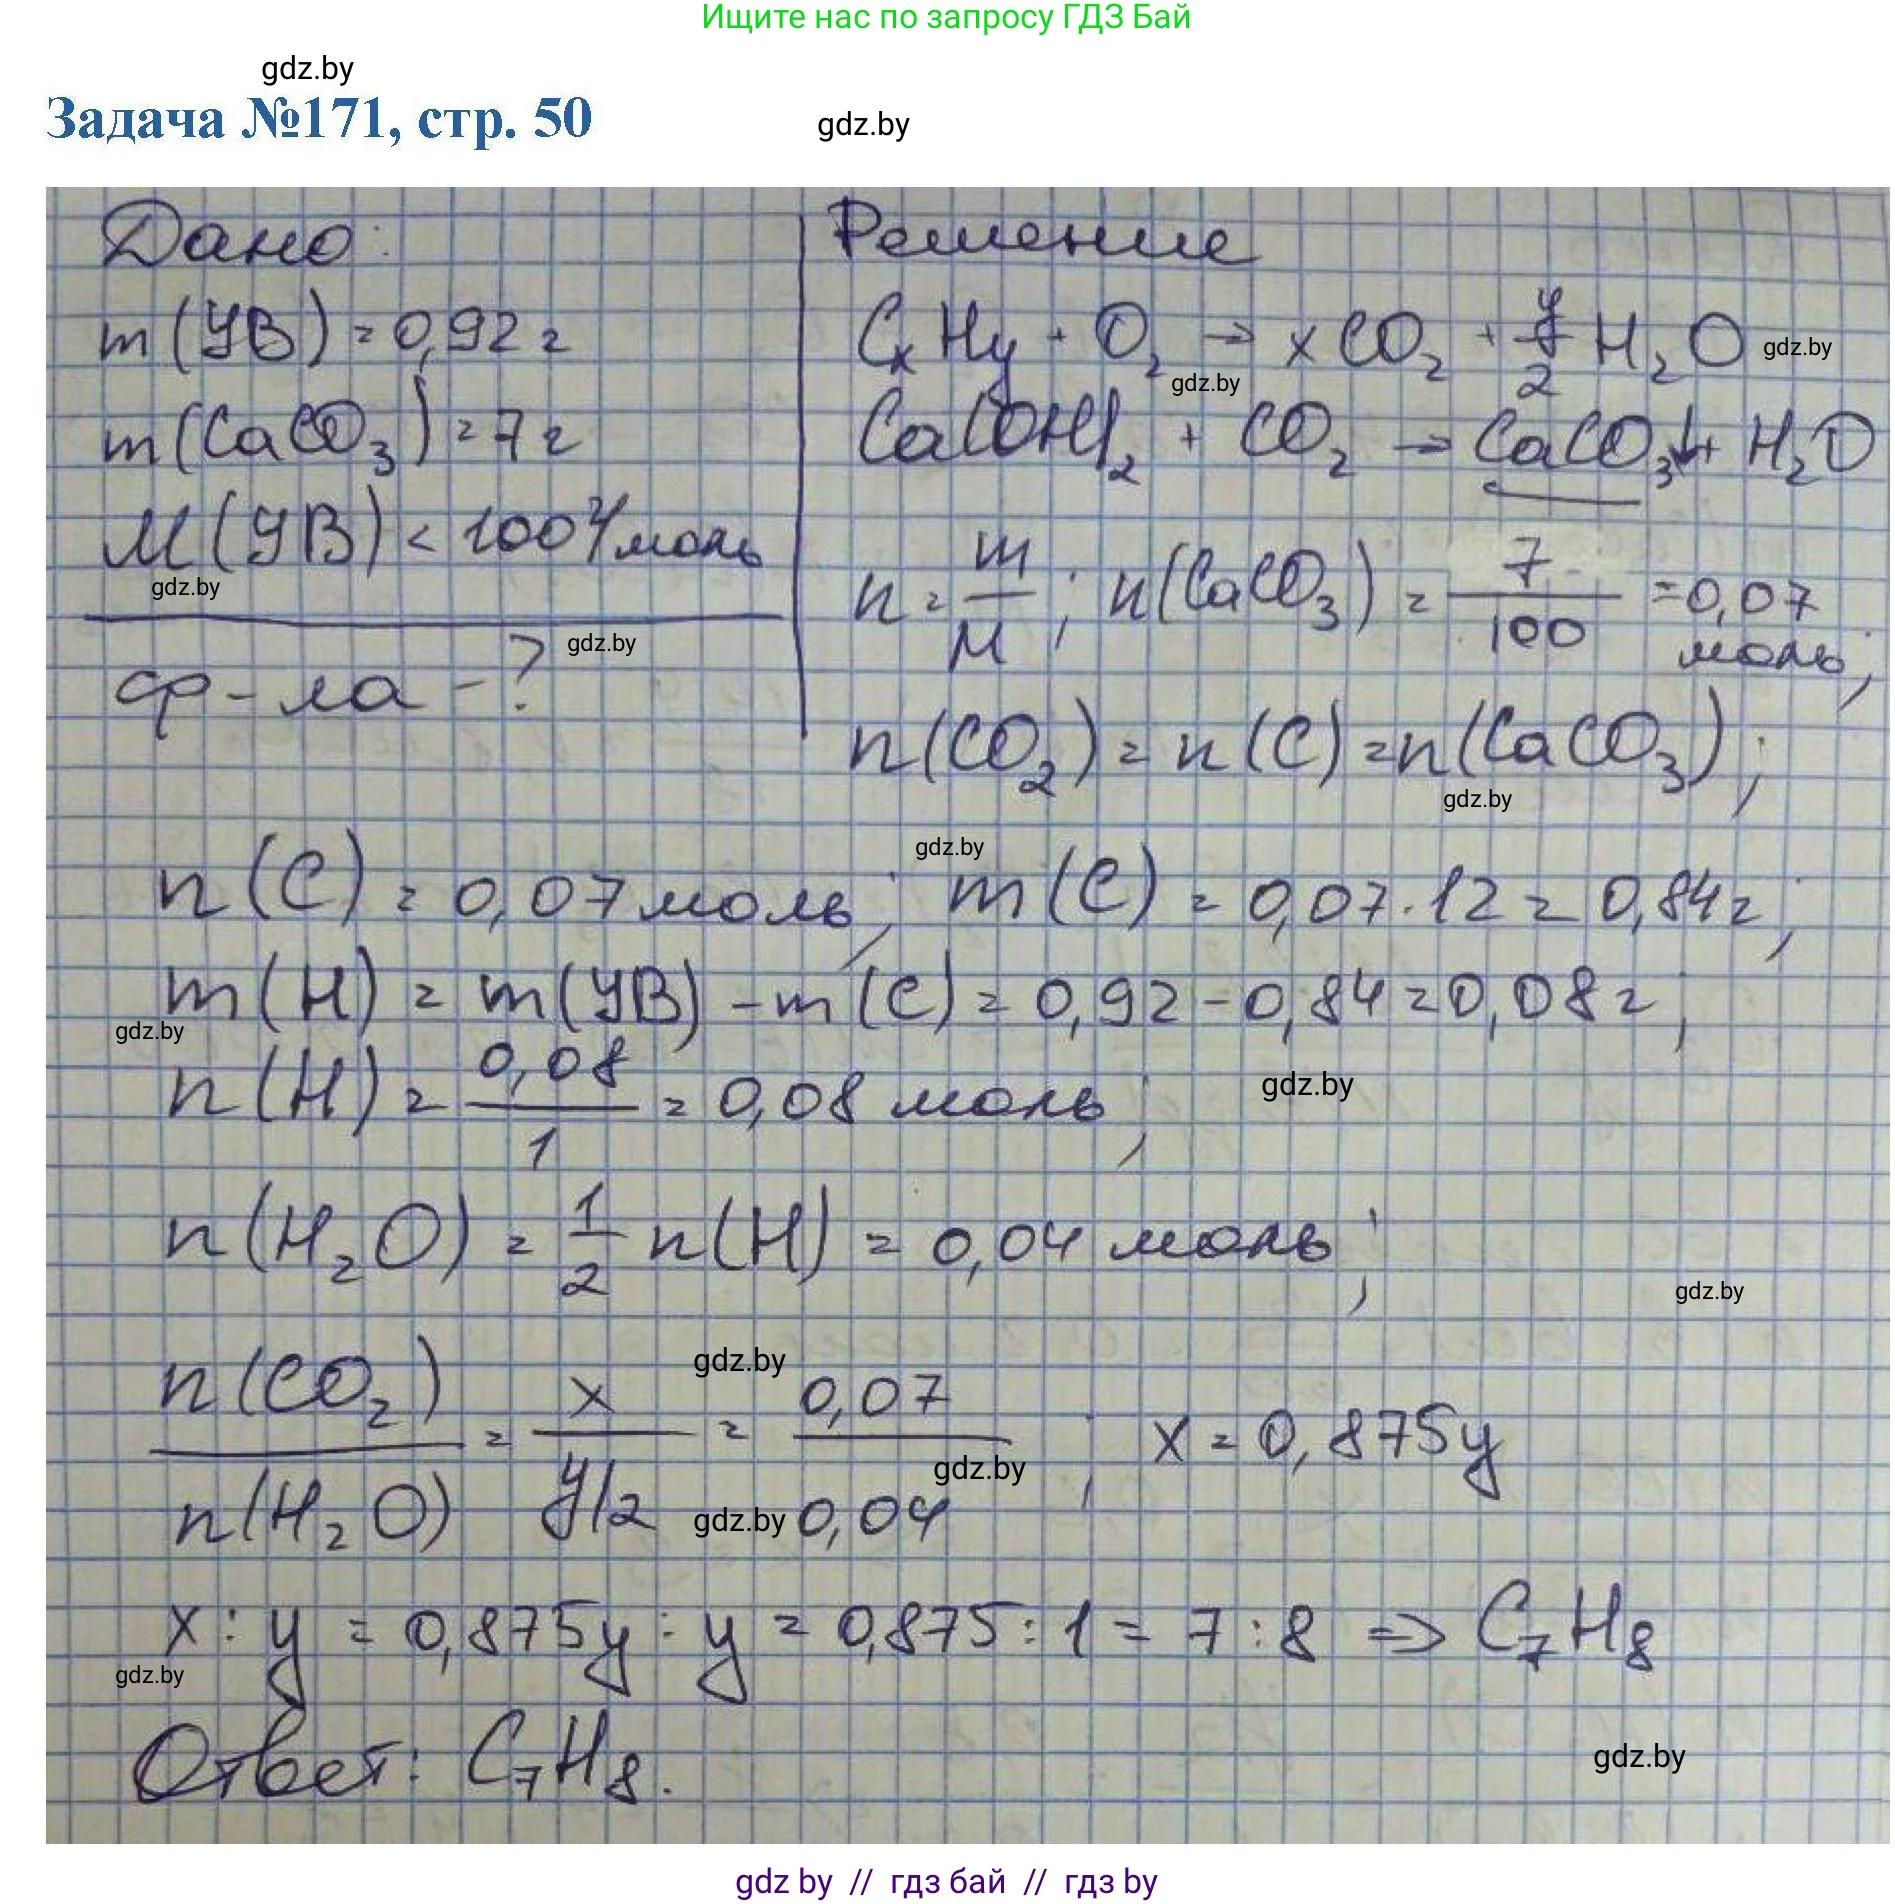 Ищите нас по запросу ГДЗ Бай
gdz.by
Задача №171, стр. 50
gdz.by
Дано:
m(УВ) = 0,92 г
m(CaCO₃) = 7 г
M(УВ) < 100 г/моль
gdz.by
ф-ла - ?
gdz.by
Решение
CxHy + O₂ → xCO₂ + y/2 H₂O
gdz.by
gdz.by
Ca(OH)₂ + CO₂ → CaCO₃↓ + H₂O
n = m/M ; n(CaCO₃) = 7/100 = 0,07 моль;
n(CO₂) = n(C) = n(CaCO₃);
gdz.by
gdz.by
n(C) = 0,07 моль; m(C) = 0,07 · 12 = 0,84 г;
m(H) = m(УВ) - m(C) = 0,92 - 0,84 = 0,08 г;
gdz.by
n(H) = 0,08/1 = 0,08 моль;
gdz.by
n(H₂O) = 1/2 n(H) = 0,04 моль;
gdz.by
gdz.by
n(CO₂)/n(H₂O) = x/y/2 = 0,07/0,04 ; x = 0,875y
gdz.by
gdz.by
x : y = 0,875y : y = 0,875 : 1 = 7 : 8 ⇒ C₇H₈
gdz.by
Ответ: C₇H₈.
gdz.by
gdz by // гдз бай // gdz by